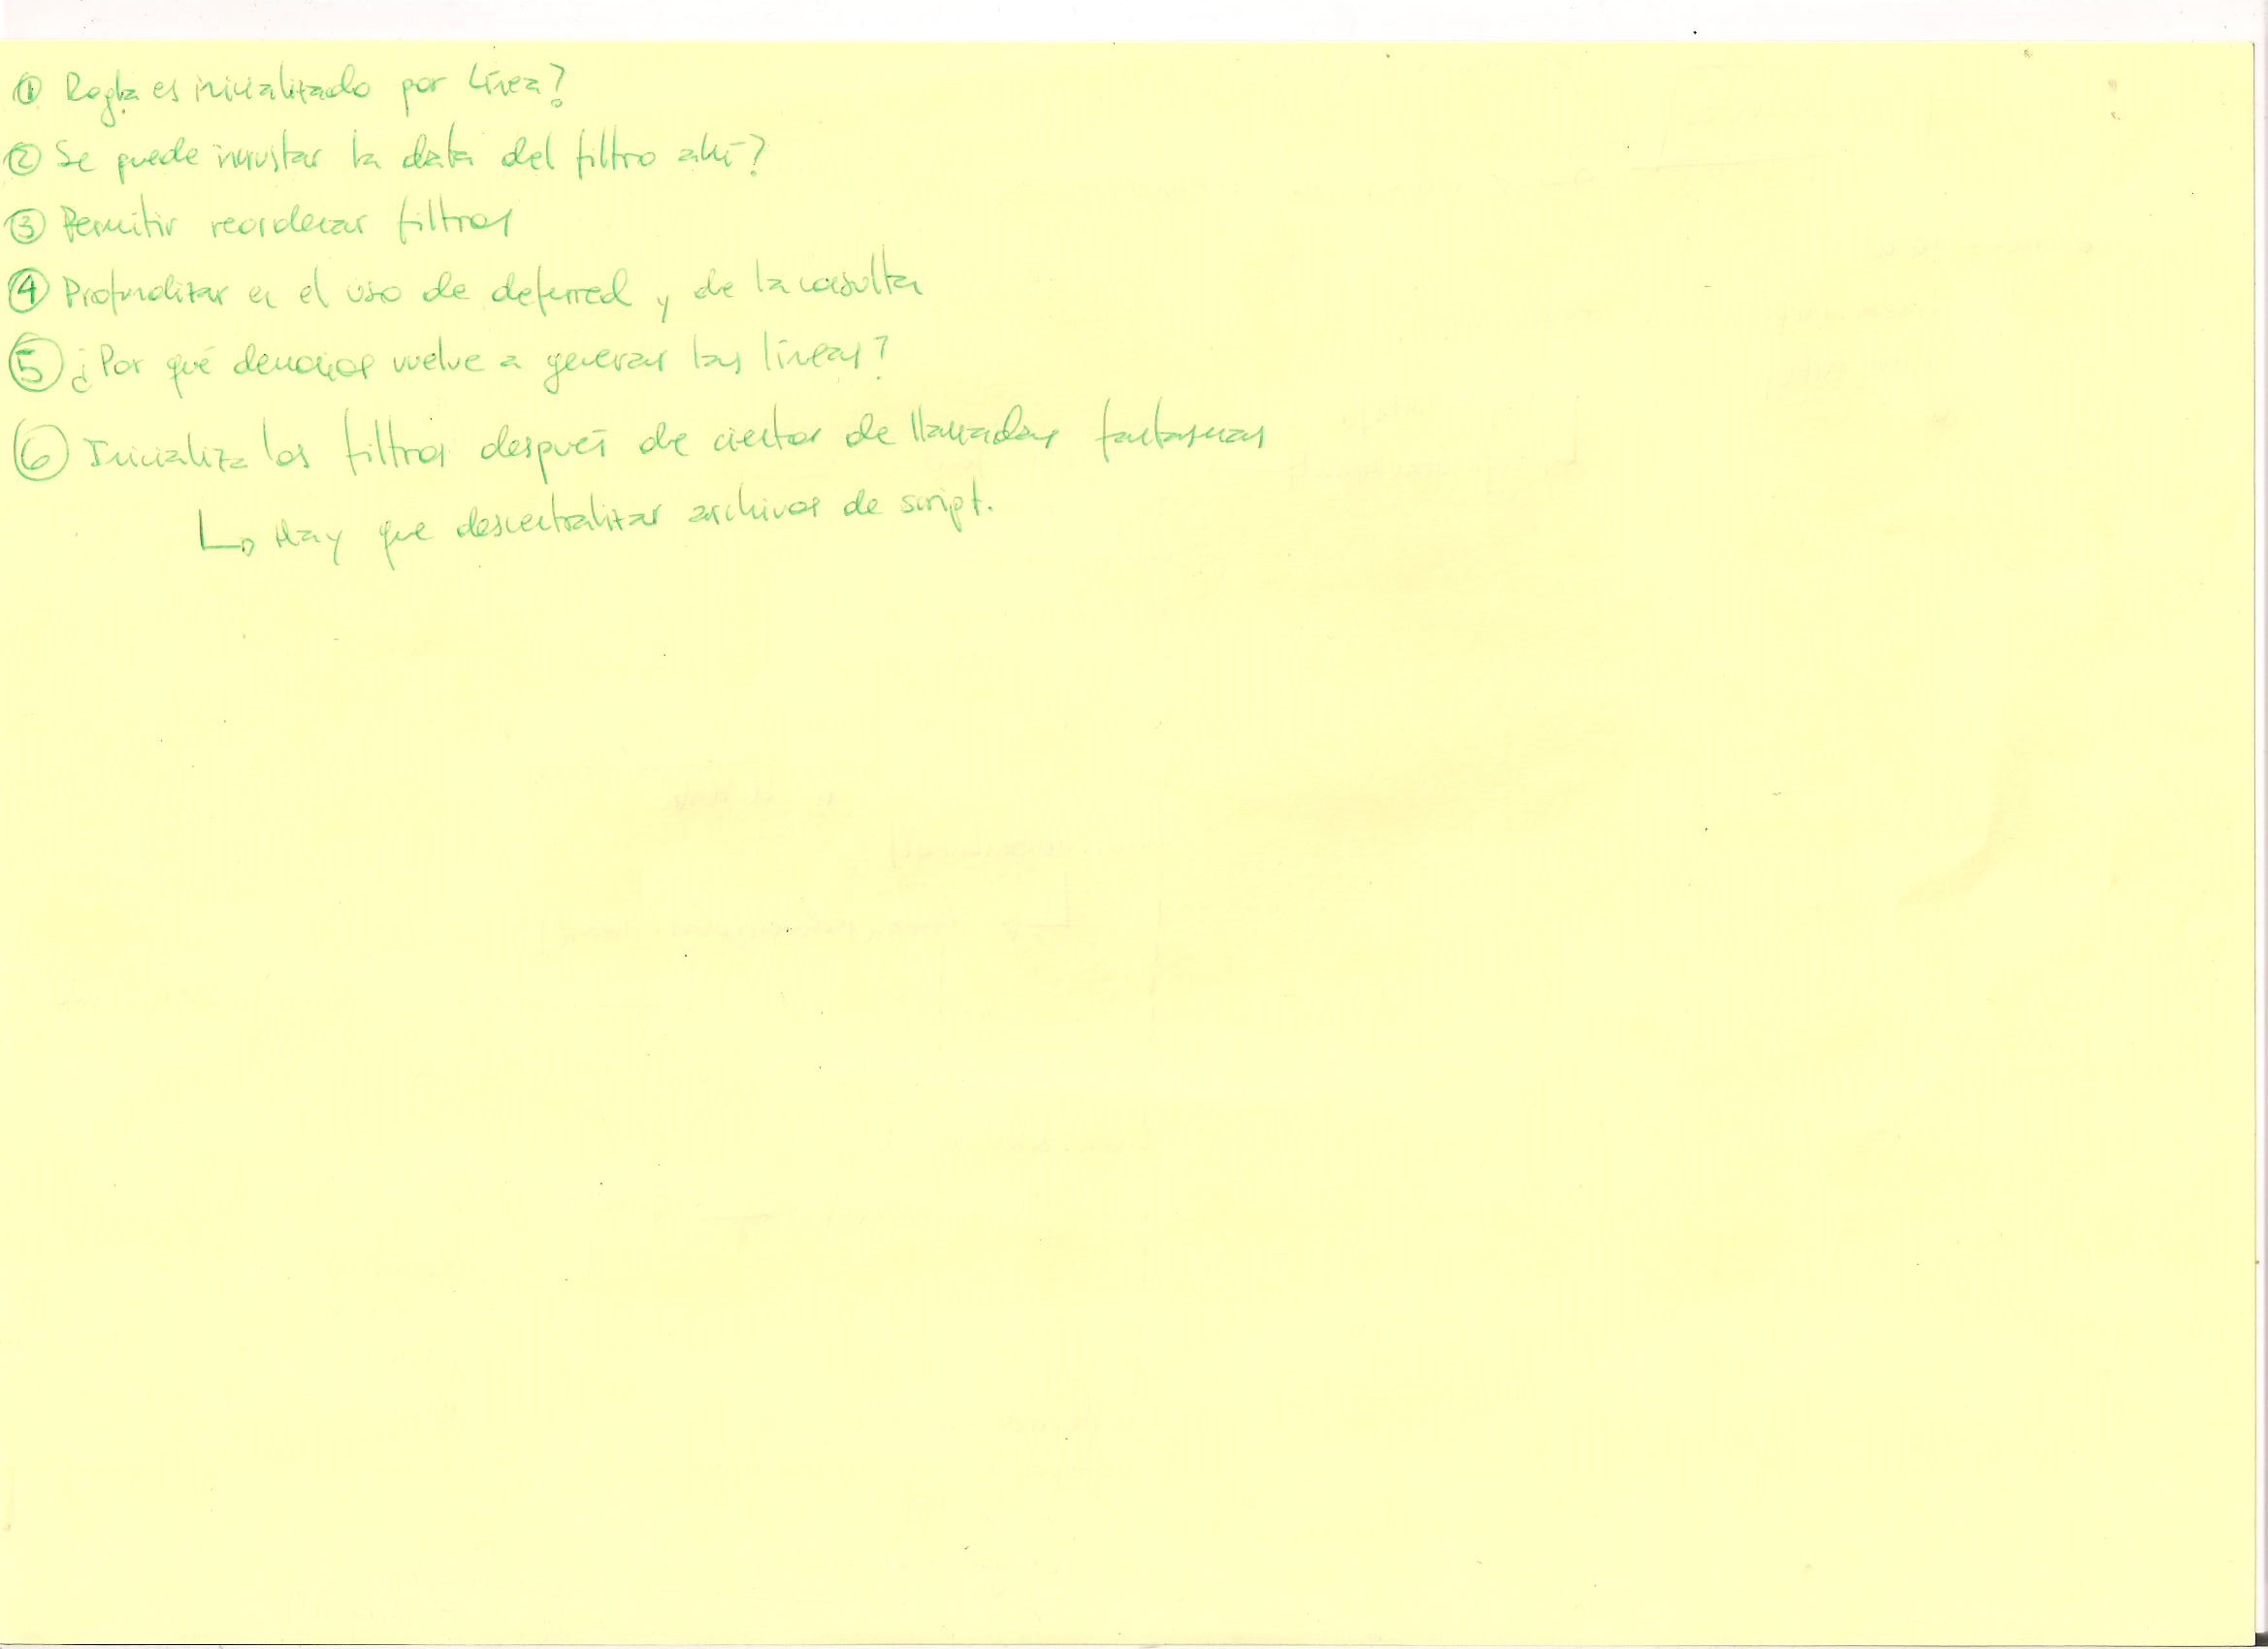 ① Regla es inicializado por línea?
② Se puede incrustar la data del filtro allí?
③ Permitir reordenar filtros
④ Profundizar en el uso de deferred y de la consulta
⑤ ¿Por qué vuelve a generar las líneas?
⑥ Inicializa los filtros después de cientos de llamadas fantasmas
↳ Hay que descentralizar archivos de script.